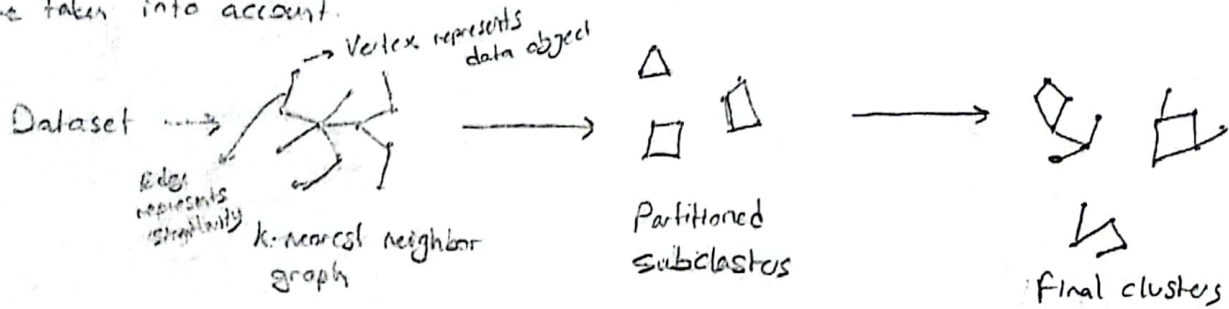 taken into account.
→ Vertex represents
data object
Dataset
Edge
represents
similarity
k-nearest neighbor
graph
Partitioned
subclasters
final clusters